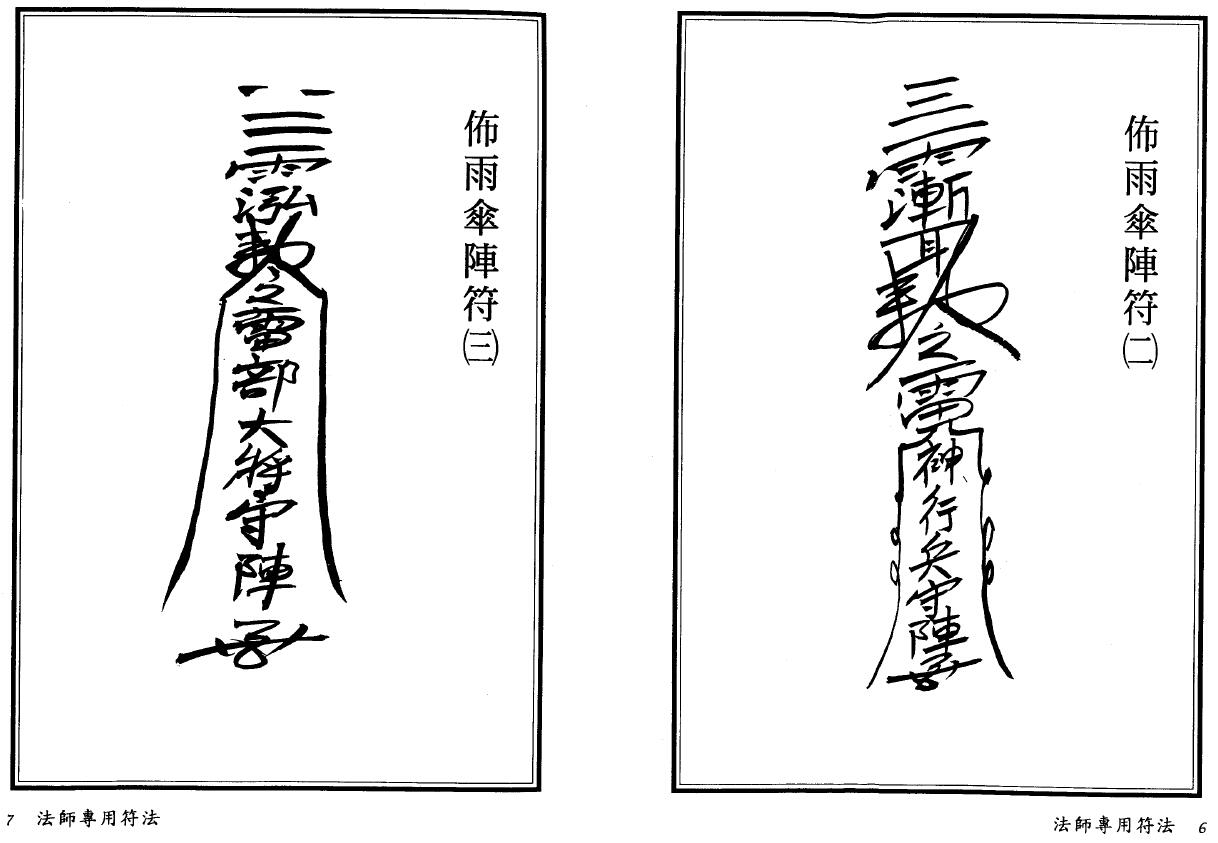 佈雨傘陣符㈡
三勅之雷神行兵守陣
法師專用符法 6
佈雨傘陣符㈢
勅之雷部大將守陣
7 法師專用符法